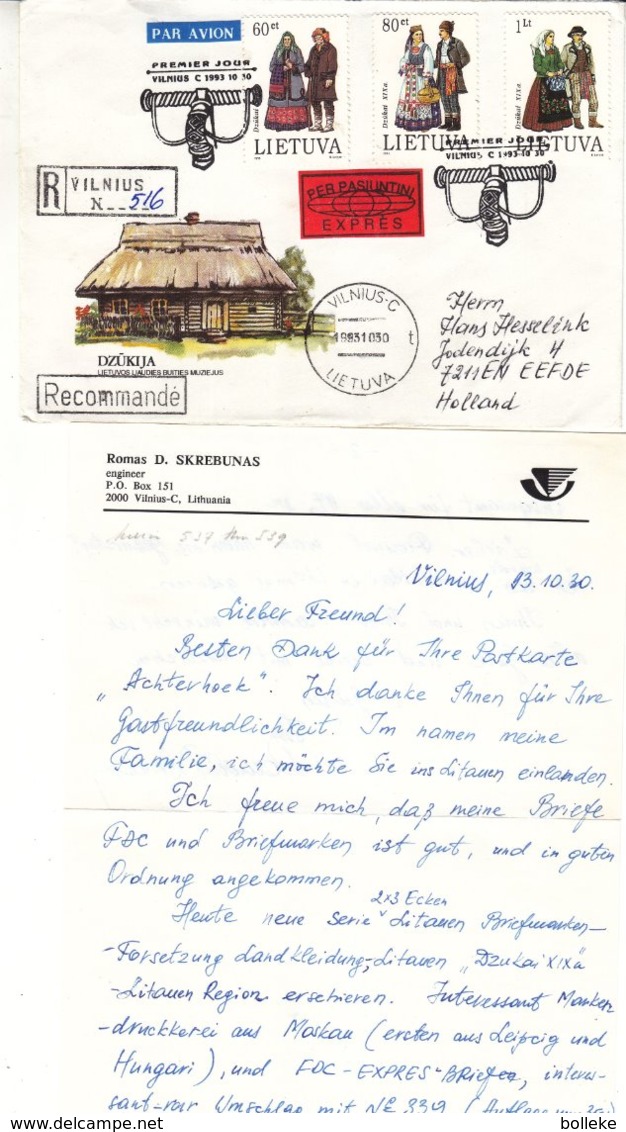 PAR AVION
PREMIER JOUR
VILNIUS C 1993 10 30
60ct
Dzūkai XIXa.
LIETUVA
80ct
Dzūkai XIXa.
LIETUVA
1Lt
Dzūkai XIXa.
LIETUVA
PREMIER JOUR
VILNIUS C 1993·10·30
R VILNIUS
N 516
PER PASIUNTINI
EXPRÈS
VILNIUS-C
19931030 t
LIETUVA
DZŪKIJA
LIETUVOS LIAUDIES BUITIES MUZIEJUS
Recommandé
Herrn
Hans Hesselink
Jodendijk 4
7211EN EEFDE
Holland
Romas D. SKREBUNAS
engineer
P.O. Box 151
2000 Vilnius-C, Lithuania
537 539
Vilnius, 93.10.30.
Lieber Freund!
Besten Dank für Ihre Postkarte
„Achterhoek". Ich danke Ihnen für Ihre
Gastfreundlichkeit. Im namen meine
Familie, ich möchte Sie ins Litauen einlanden.
Ich freue mich, daß meine Briefe
FDC und Briefmarken ist gut, und in guten
Ordnung angekommen.
2x3 Ecken
Heute neue serie Litauen Briefmarken-
-Forsetzung Landkleidung, Litauen „Dzukai XIXa"
-Litauen Region erschieren. Interessant Marken
-druckkerei aus Moskau (ersten aus Leipcig und
Hungari), und FDC-EXPRES-Briefe, interes-
sant-rar Umschlag mit № 339 (Auflage
delcampe.net
bolleke